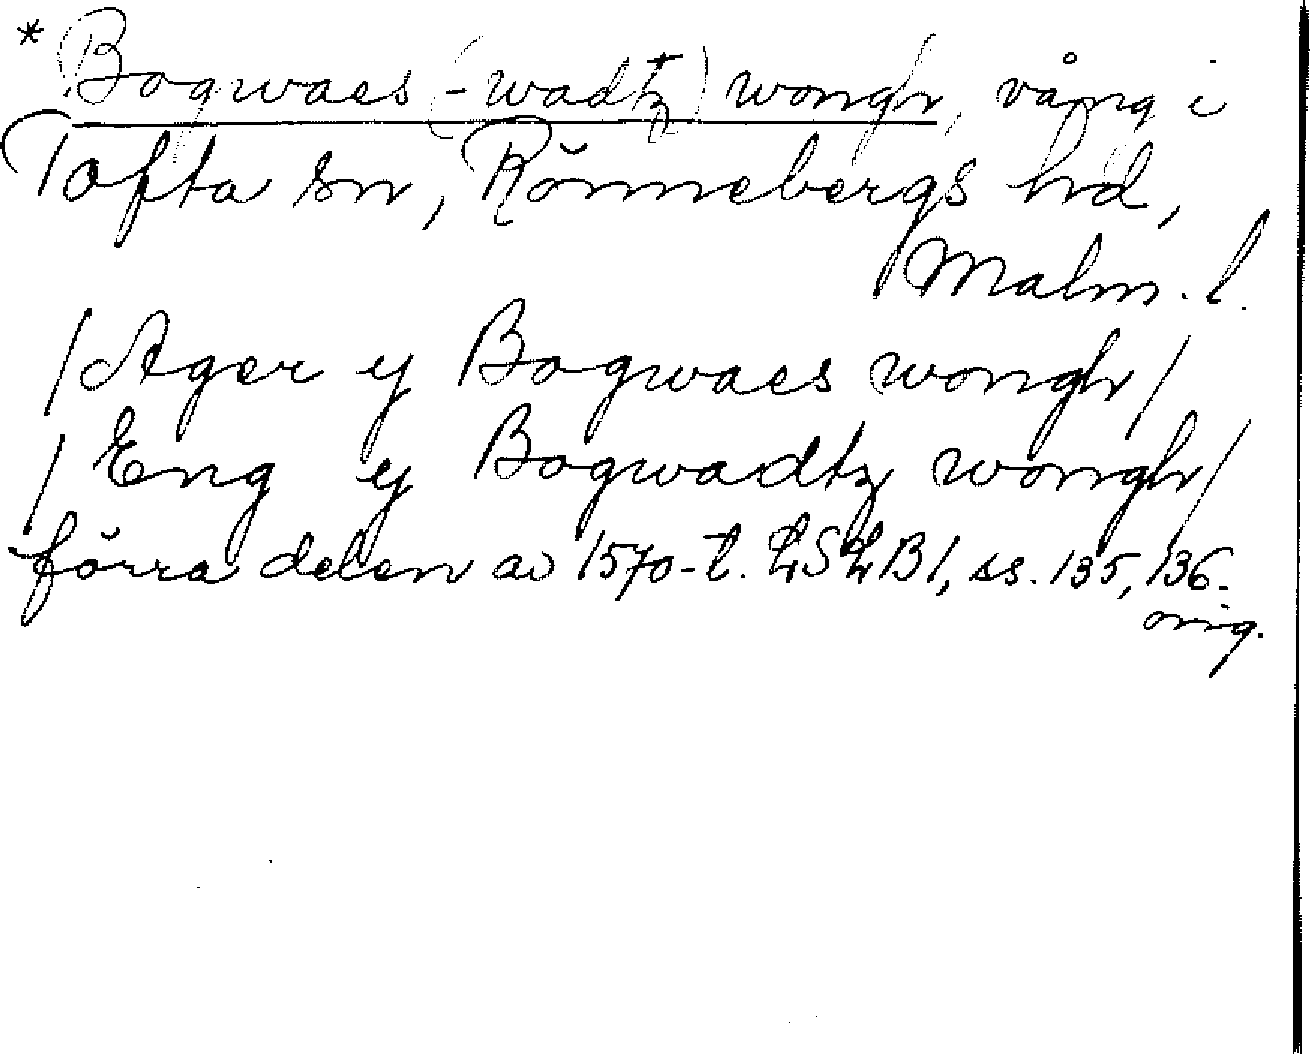 * Bogwaes (-wadtz) wongh, vång i
Tofta sn, Rönnebergs hd,
Malm. l.
/Ager y Bogwaes wongh/
/Eng y Bogwadtz wongh/
förra delen av 1570-t. LSLB1, ss. 135, 136.
orig.